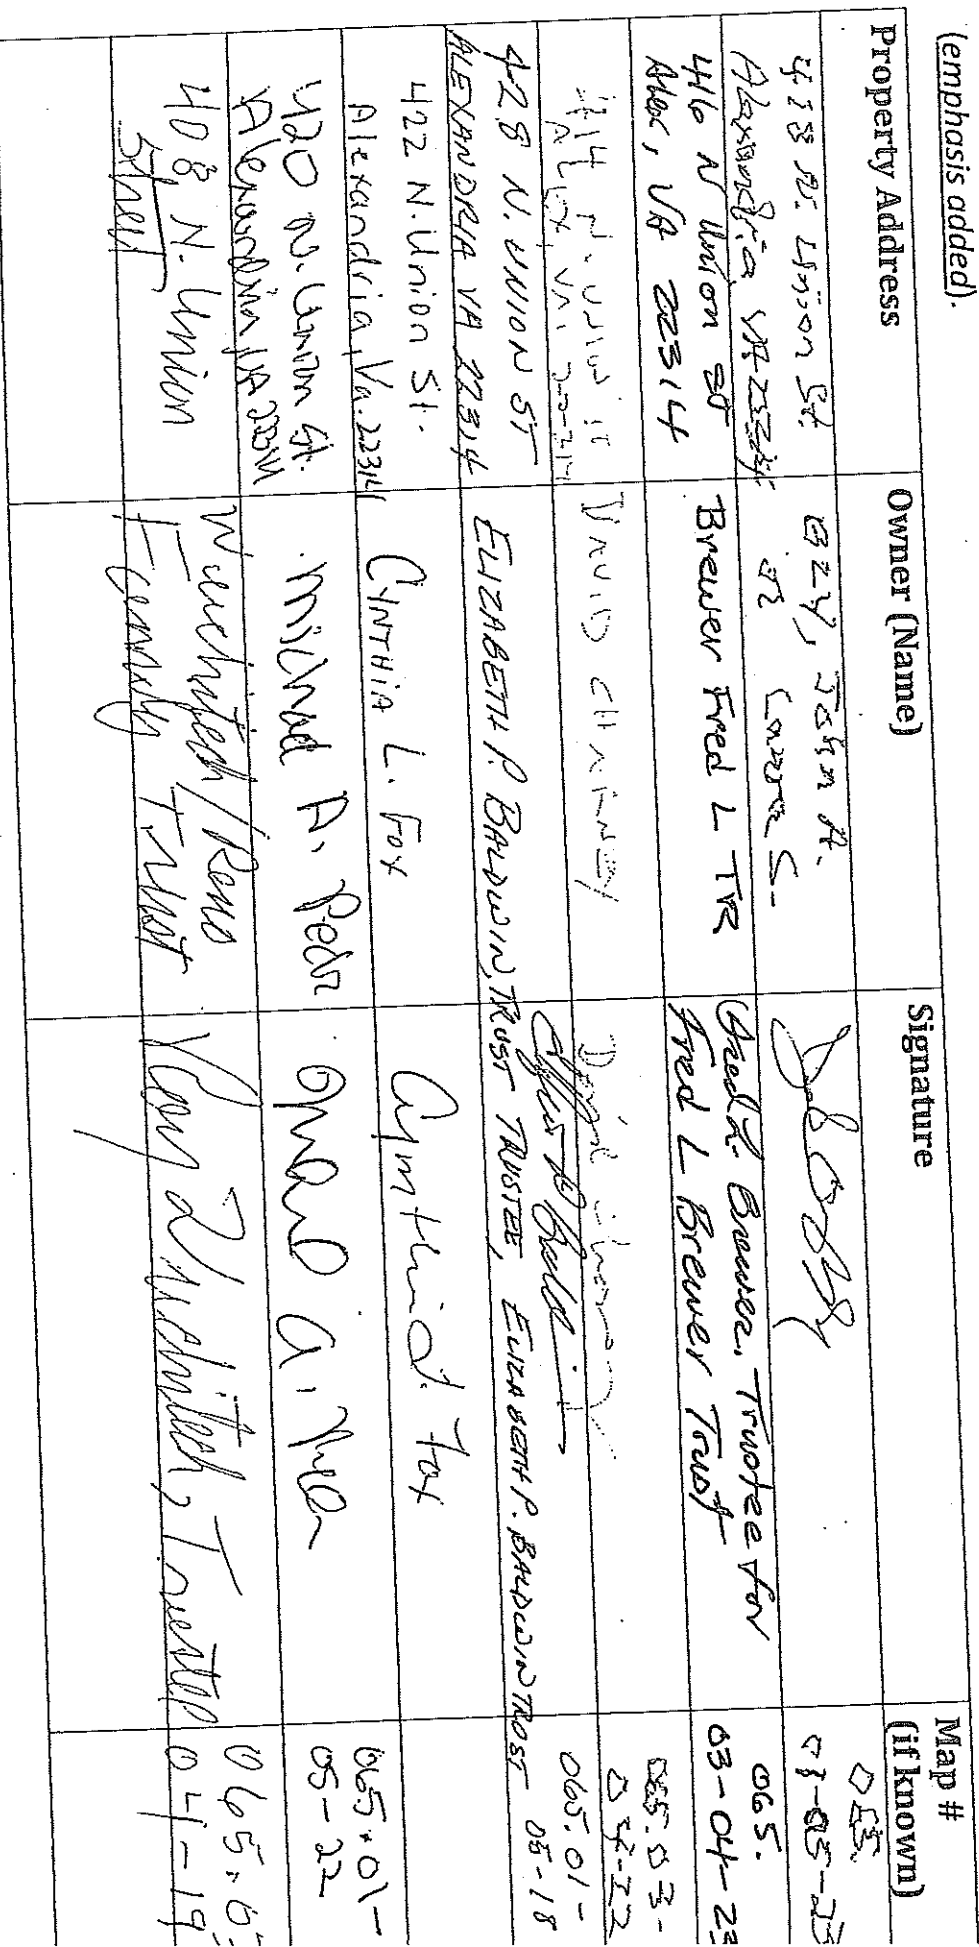 (emphasis added).
Property Address
Owner (Name)
Signature
Map #
(if known)
N. Union St
Alexandria VA
John A.
S.
065.
-05-23
416 N Union St
Alex, VA 22314
Brewer Fred L TR
Fred L. Brewer, Trustee for
Fred L Brewer Trust
065.
03-04-23
414 N. UNION ST
ALEX, VA. 22314
DAVID CHANEY
065.03-
04-22
428 N. UNION ST
ALEXANDRIA VA 22314
ELIZABETH P. BALDWIN, TRUST TRUSTEE, ELIZABETH P. BALDWIN TRUST
065.01-
05-18
422 N. Union St.
Alexandria, Va. 22314
CYNTHIA L. FOX
Cynthia L. Fox
420 N. Union St.
Alexandria, VA 22314
Michael A.
065.01-
05-22
408 N. Union
Street
Family Trust
Trustee
065.03
04-19